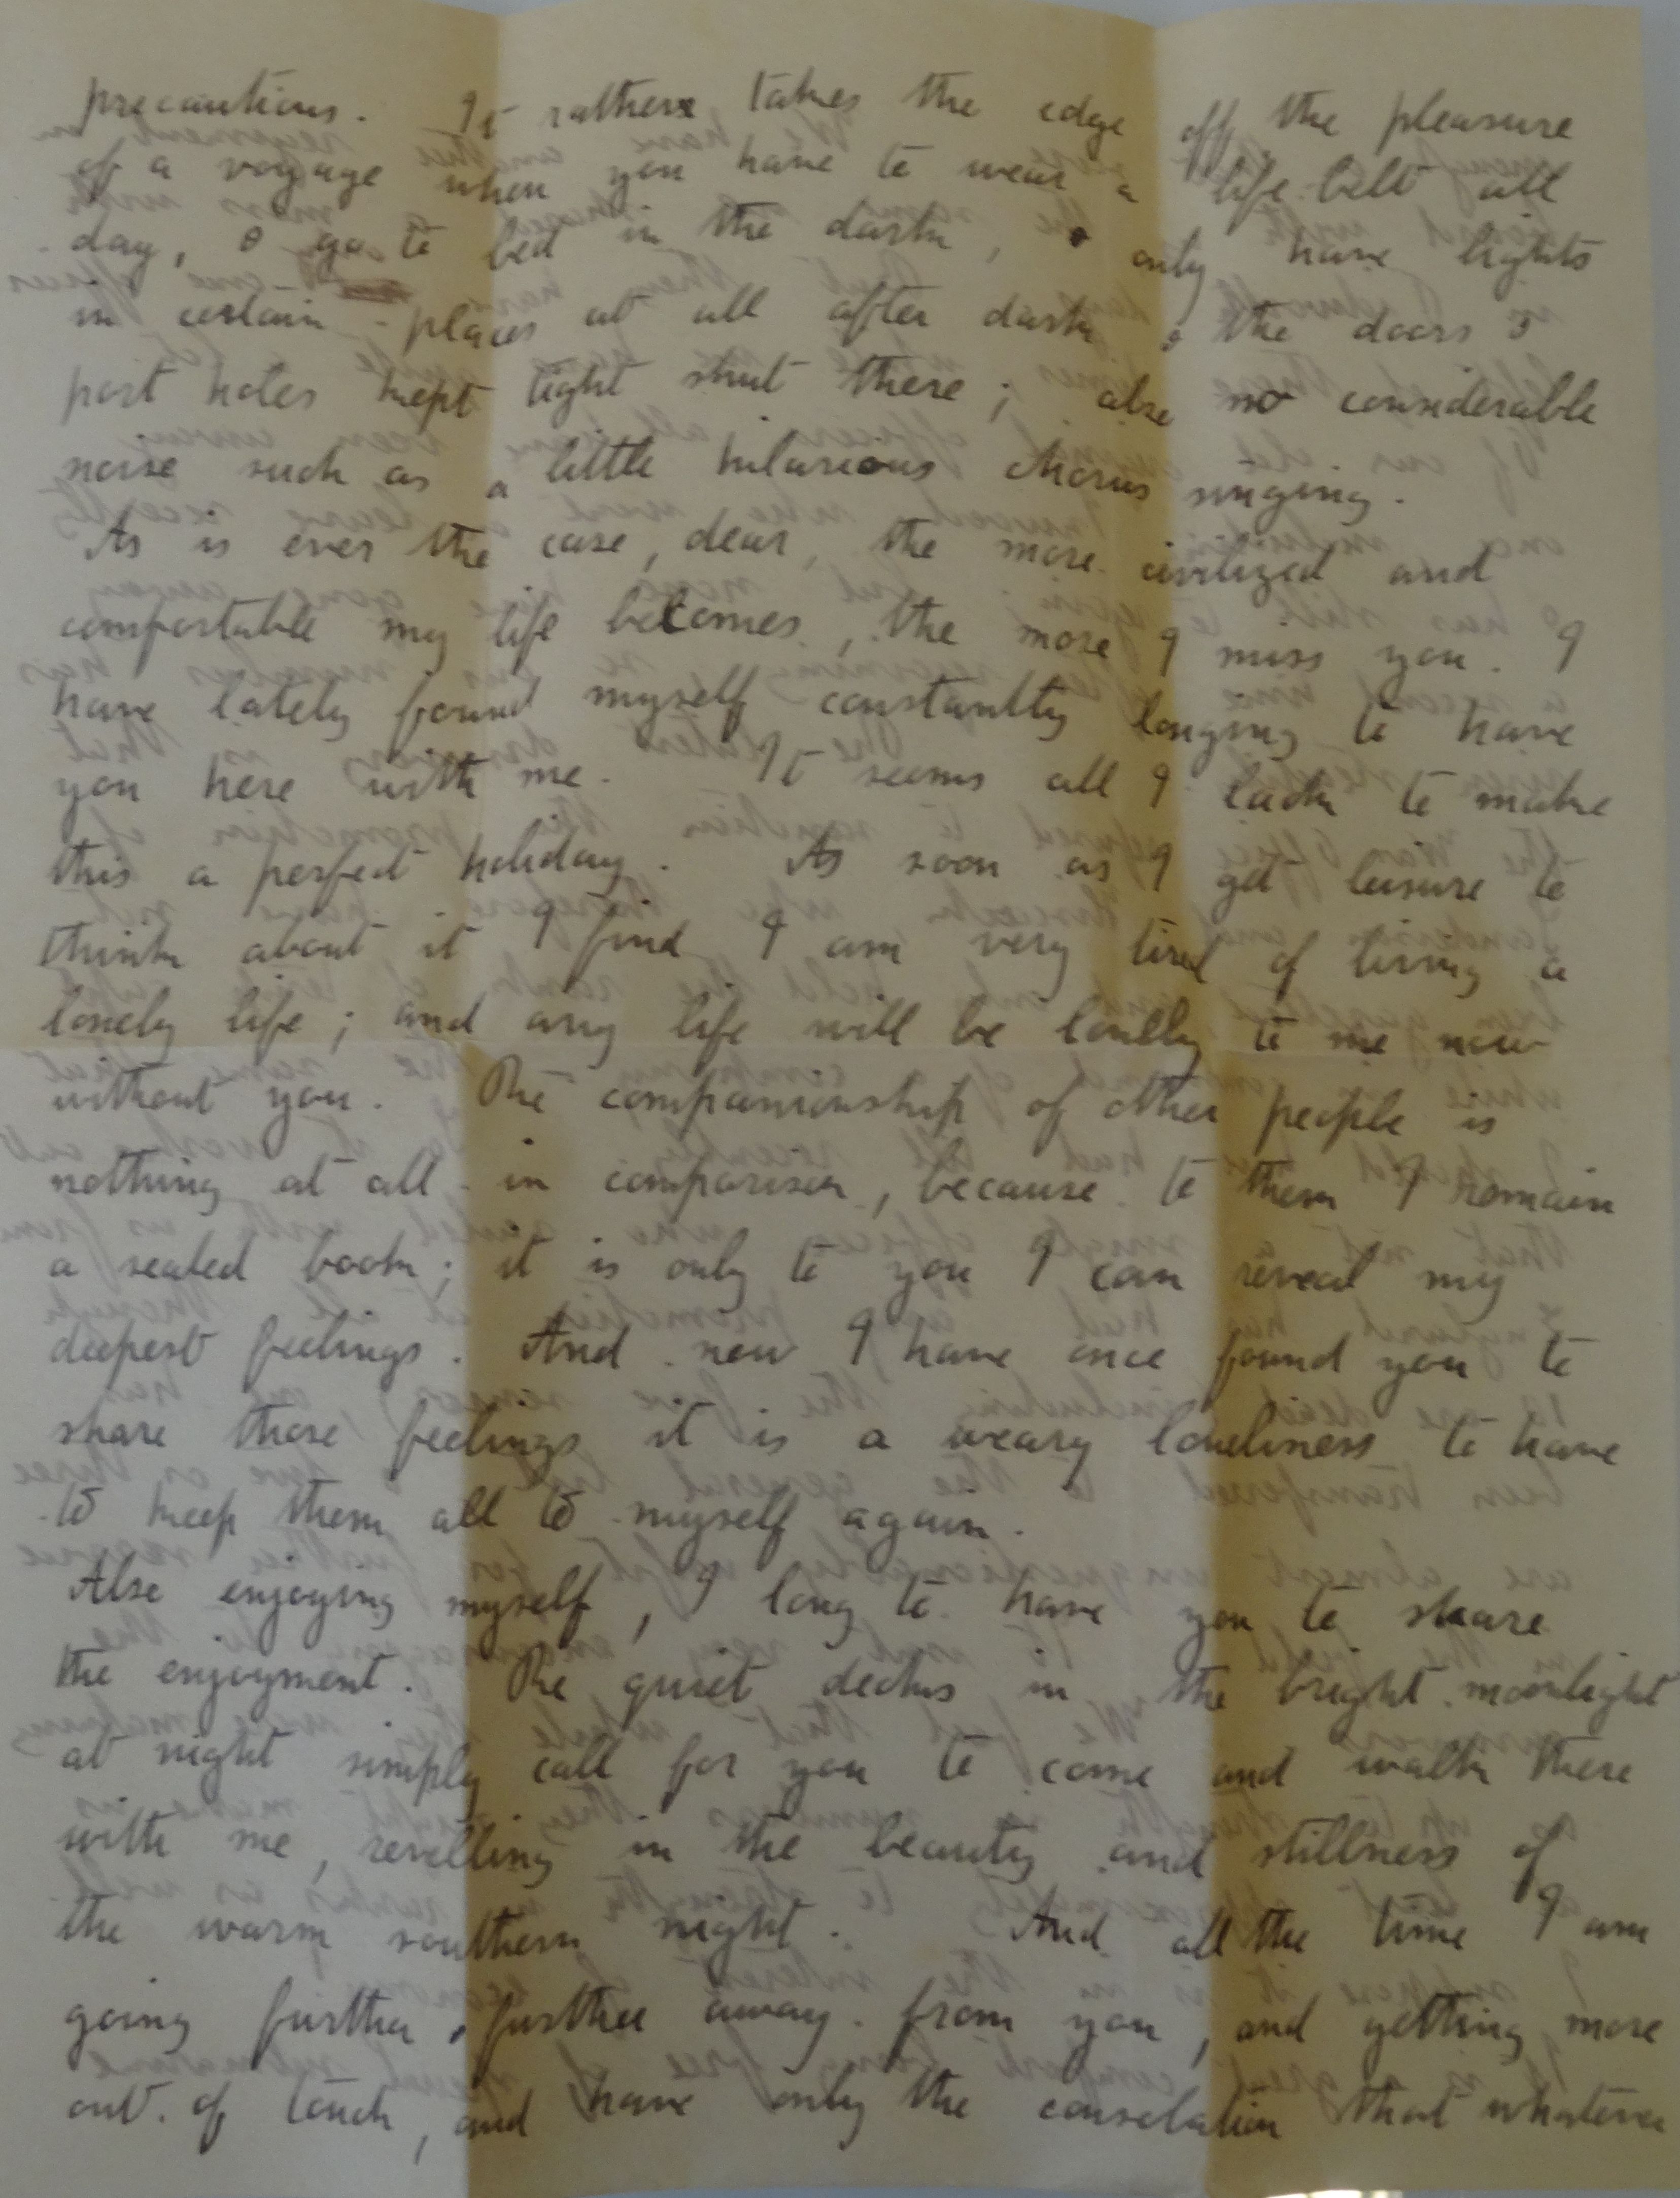 precautions. It rather takes the edge off the pleasure
of a voyage when you have to wear a life belt all
day, & go to bed in the dark, & only have lights
in certain places at all after dark & the doors &
port holes kept tight shut there; also no considerable
noise such as a little hilarious chorus singing.
As is ever the case, dear, the more civilized and
comfortable my life becomes, the more I miss you. I
have lately found myself constantly longing to have
you here with me. It seems all I lack to make
this a perfect holiday. As soon as I get leisure to
think about it I find I am very tired of living a
lonely life; and any life will be lonely to me now
without you. The companionship of other people is
nothing at all in comparison, because to them I remain
a sealed book; it is only to you I can reveal my
deepest feelings. And now I have once found you to
share those feelings it is a weary loneliness to have
to keep them all to myself again.
Also enjoying myself, I long to have you to share
the enjoyment. The quiet decks in the bright moonlight
at night simply call for you to come and walk there
with me, revelling in the beauty and stillness of
the warm southern night. And all the time I am
going further & further away from you, and getting more
out of touch, and have only the consolation that whatever